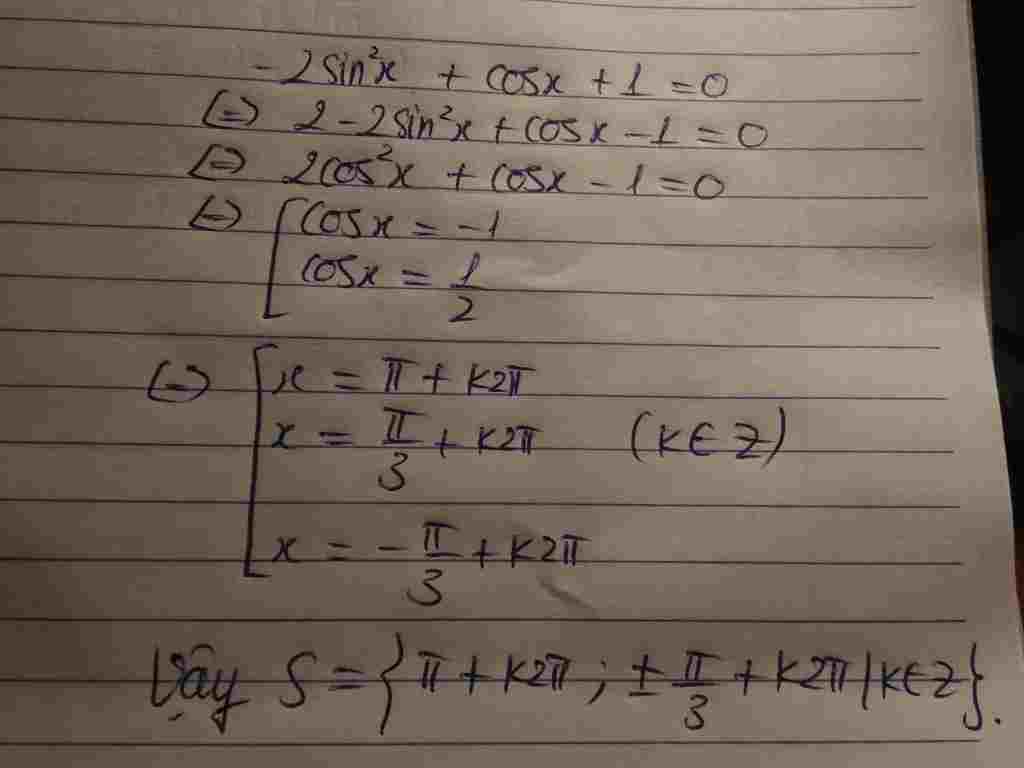 - 2sin²x + cosx + 1 = 0
(=) 2 - 2sin²x + cosx - 1 = 0
(=) 2cos²x + cosx - 1 = 0
(=) [ cosx = -1
cosx = 1/2
(=) [ x = π + k2π
x = π/3 + k2π (k∈Z)
x = -π/3 + k2π
Vậy S = {π + k2π ; ± π/3 + k2π | k∈Z}.